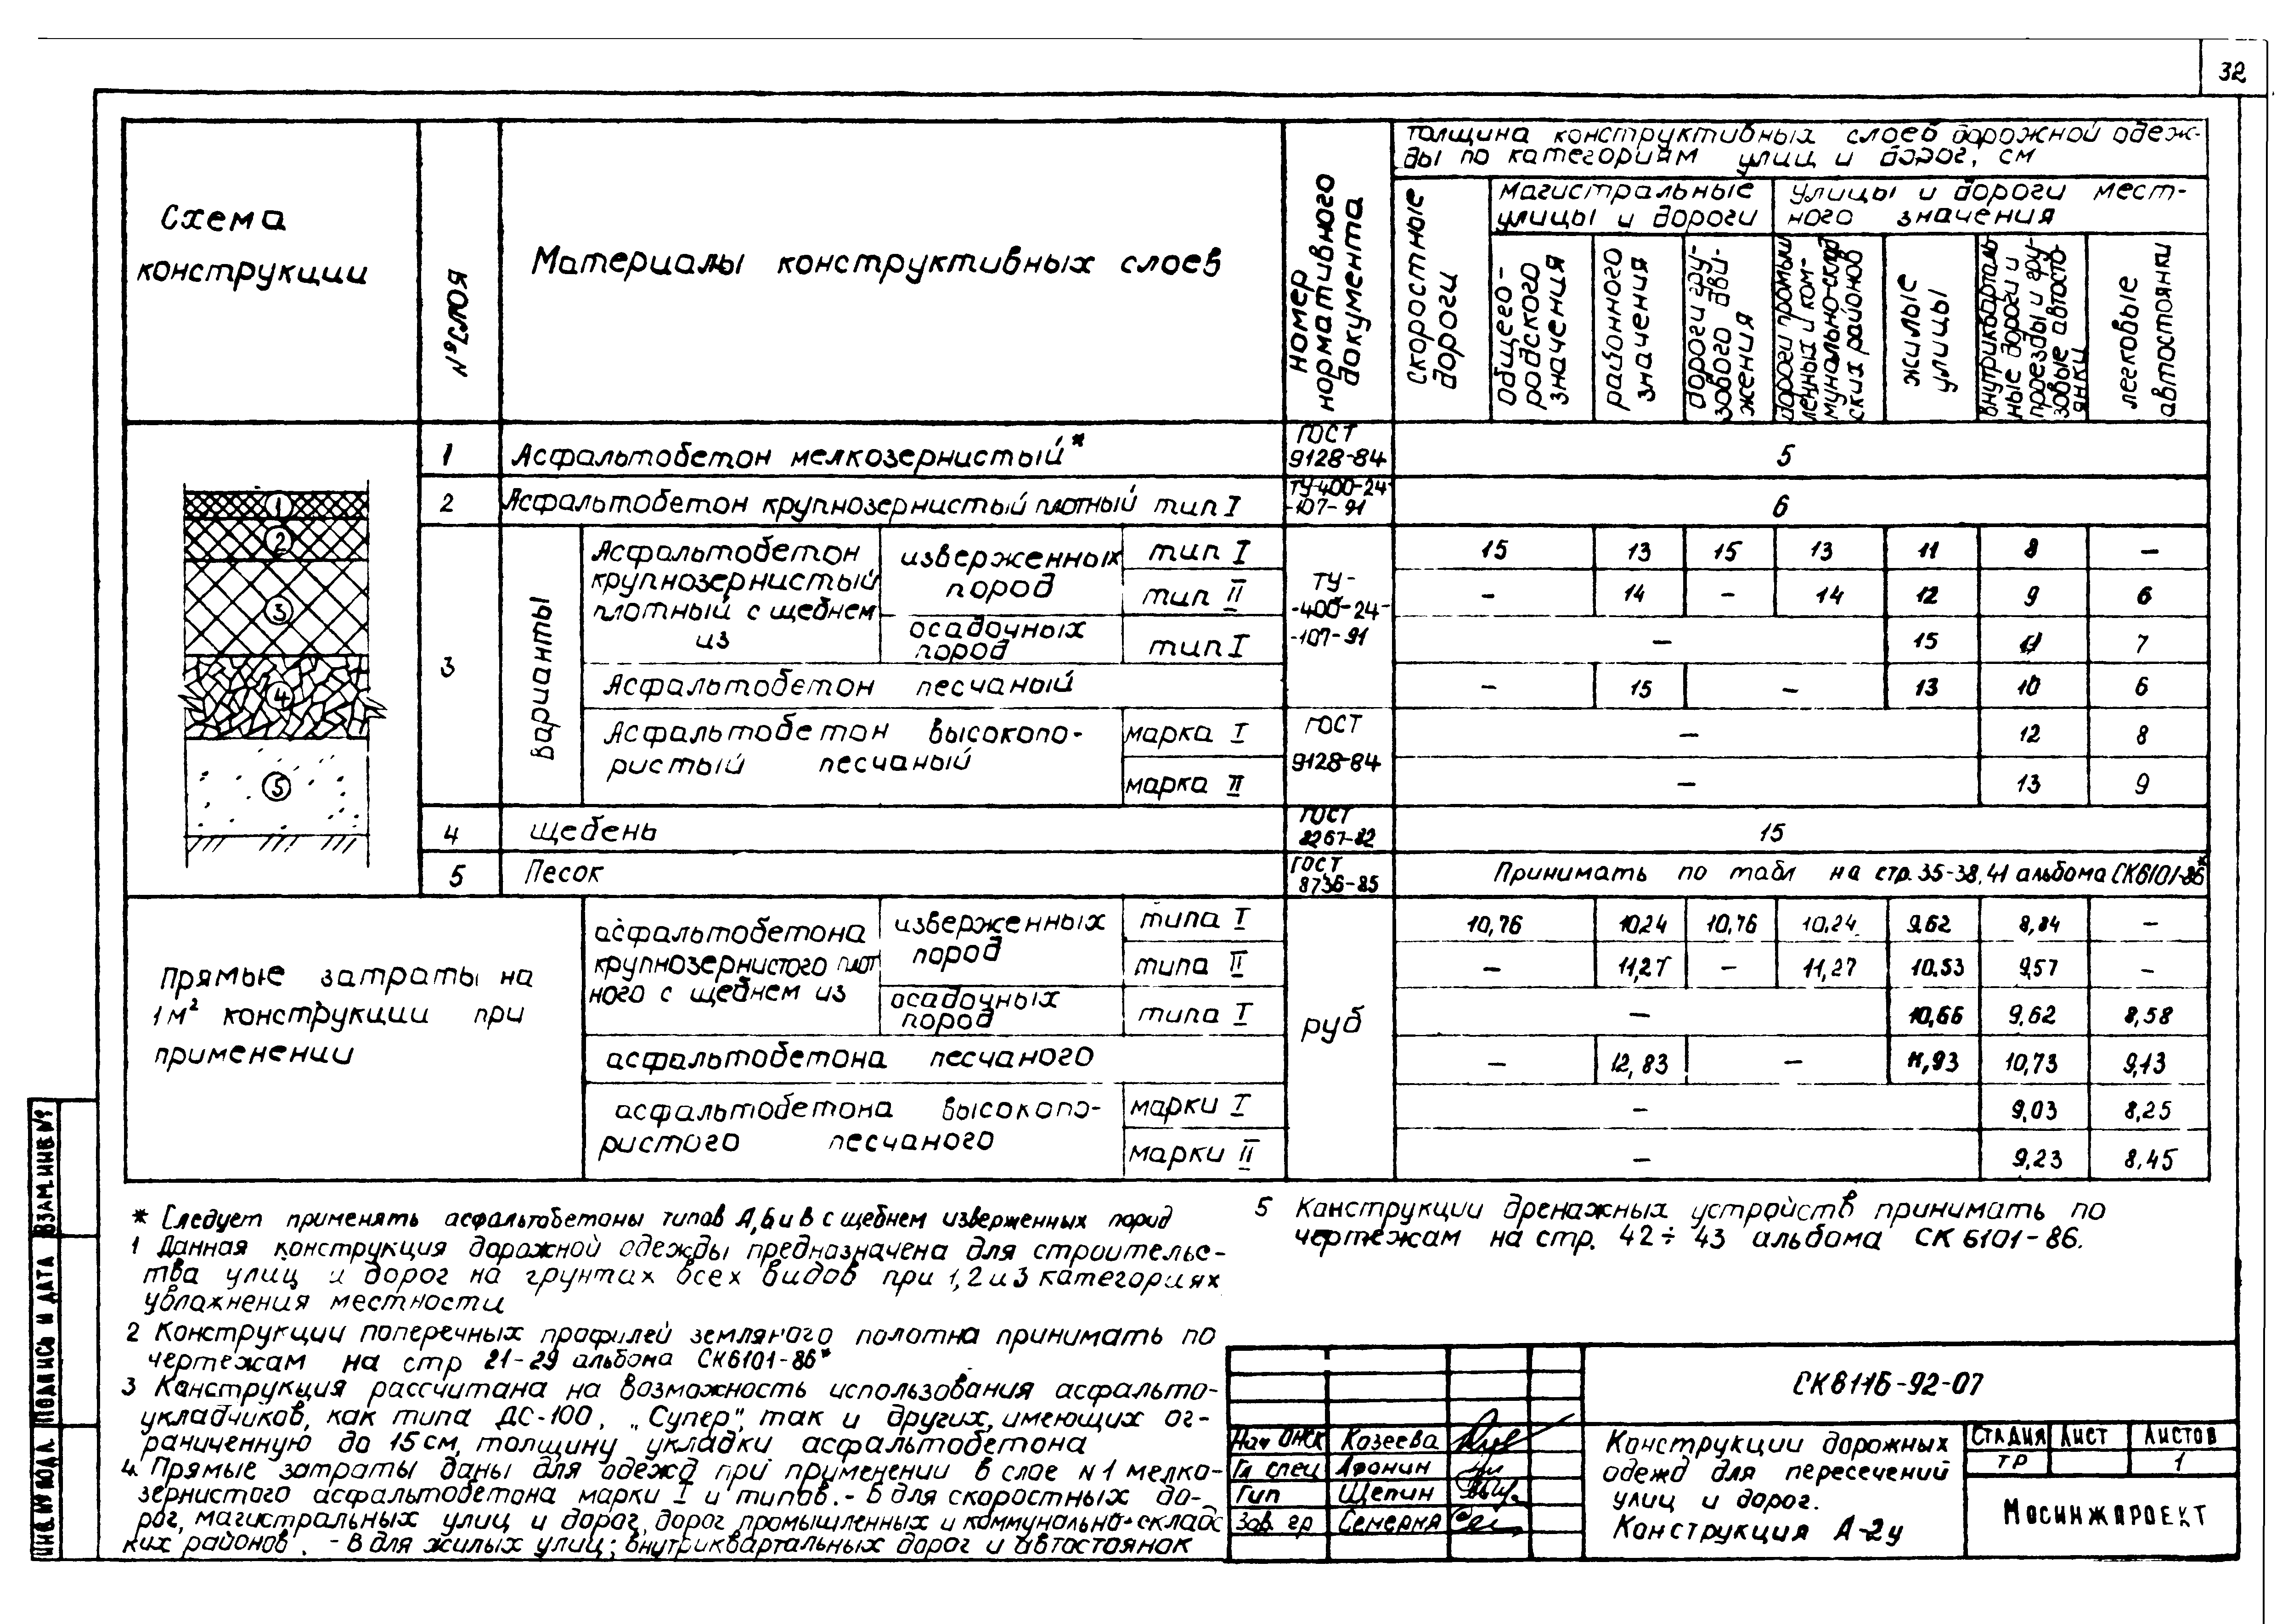 32
Схема
конструкции
№ слоя
Материалы конструктивных слоев
номер
нормативного
документа
толщина конструктивных слоев дорожной одеж-
ды по категориям улиц и дорог, см
скоростные
дороги
магистральные
улицы и дороги
улицы и дороги мест-
ного значения
общего-
родского
значения
районного
значения
дороги гру-
зового дви-
жения
дороги промыш
ленных и ком-
мунально-склад
ских районов
жилые
улицы
внутрикварталь
ные дороги и
проезды и гру-
зовые автосто-
янки
легковые
автостоянки
1 Асфальтобетон мелкозернистый* ГОСТ 9128-84 5
2 Асфальтобетон крупнозернистый плотный тип I ТУ-400-24 -107-91 6
3 Варианты
Асфальтобетон
крупнозернистый
плотный с щебнем
из
изверженных
пород
тип I 15 13 15 13 11 8 —
тип II — 14 — 14 12 9 6
осадочных
пород
тип I — 15 11 7
ТУ-
-400-24-
-107-91
Асфальтобетон песчаный — 15 — 13 10 6
Асфальтобетон высокопо-
ристый песчаный
марка I — 12 8
марка II — 13 9
ГОСТ
9128-84
4 щебень ГОСТ 8267-82 15
5 Песок ГОСТ 8736-85 Принимать по табл на стр. 35-38, 41 альбома СК6101-86*
Прямые затраты на
1м² конструкции при
применении
асфальтобетона
крупнозернистого плот
ного с щебнем из
изверженных
пород
типа I 10,76 10,24 10,76 10,24 9,62 8,84 —
типа II — 11,27 — 11,27 10.53 9,57 —
осадочных
пород
типа I — 10,66 9,62 8,58
руб
асфальтобетона песчаного — 12,83 — 11,93 10,73 9,13
асфальтобетона высокопо-
ристого песчаного
марки I — 9,03 8,25
марки II — 9,23 8,45
1
2
3
4
5
* Следует применять асфальтобетоны типов А, Б и В с щебнем изверженных пород
1 Данная конструкция дорожной одежды предназначена для строительс-
тва улиц и дорог на грунтах всех видов при 1, 2 и 3 категориях
увлажнения местности
2 Конструкции поперечных профилей земляного полотна принимать по
чертежам на стр 21-29 альбома СК6101-86*
3 Конструкция рассчитана на возможность использования асфальто-
укладчиков, как типа ДС-100, „Супер", так и других, имеющих ог-
раниченную до 15 см, толщину укладки асфальтобетона
4. Прямые затраты даны для одежд при применении в слое N1 мелко-
зернистого асфальтобетона марки I и типов. - Б для скоростных до-
рог, магистральных улиц и дорог, дорог промышленных и коммунально-складс
ких районов. - В для жилых улиц; внутриквартальных дорог и автостоянок
5 Конструкции дренажных устройств принимать по
чертежам на стр. 42÷43 альбома СК 6101-86.
СК6116-92-07
Нач ОНСК Козеева
Гл спец Афонин
Гип Щепин
Зав. гр Семерня
Конструкции дорожных
одежд для пересечений
улиц и дорог.
Конструкция А-2у
СТАДИЯ ЛИСТ ЛИСТОВ
ТР 1
МОСИНЖПРОЕКТ
ВЗАМ.ИНВ.№
ПОДПИСЬ И ДАТА
ИНВ.№ ПОДЛ.